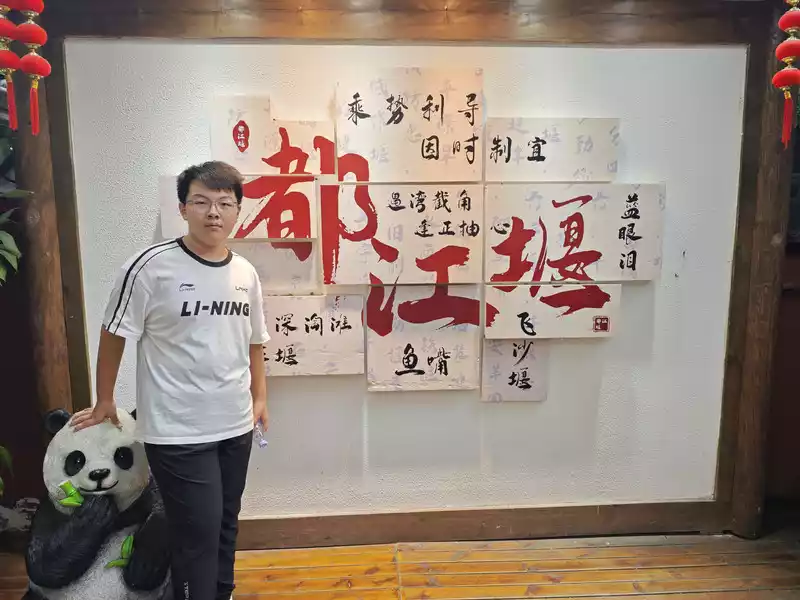 都江堰
乘势利导
因时制宜
都江堰
遇湾截角
逢正抽心
蓝眼泪
深淘滩
作堰
鱼嘴
飞沙堰
LI-NING